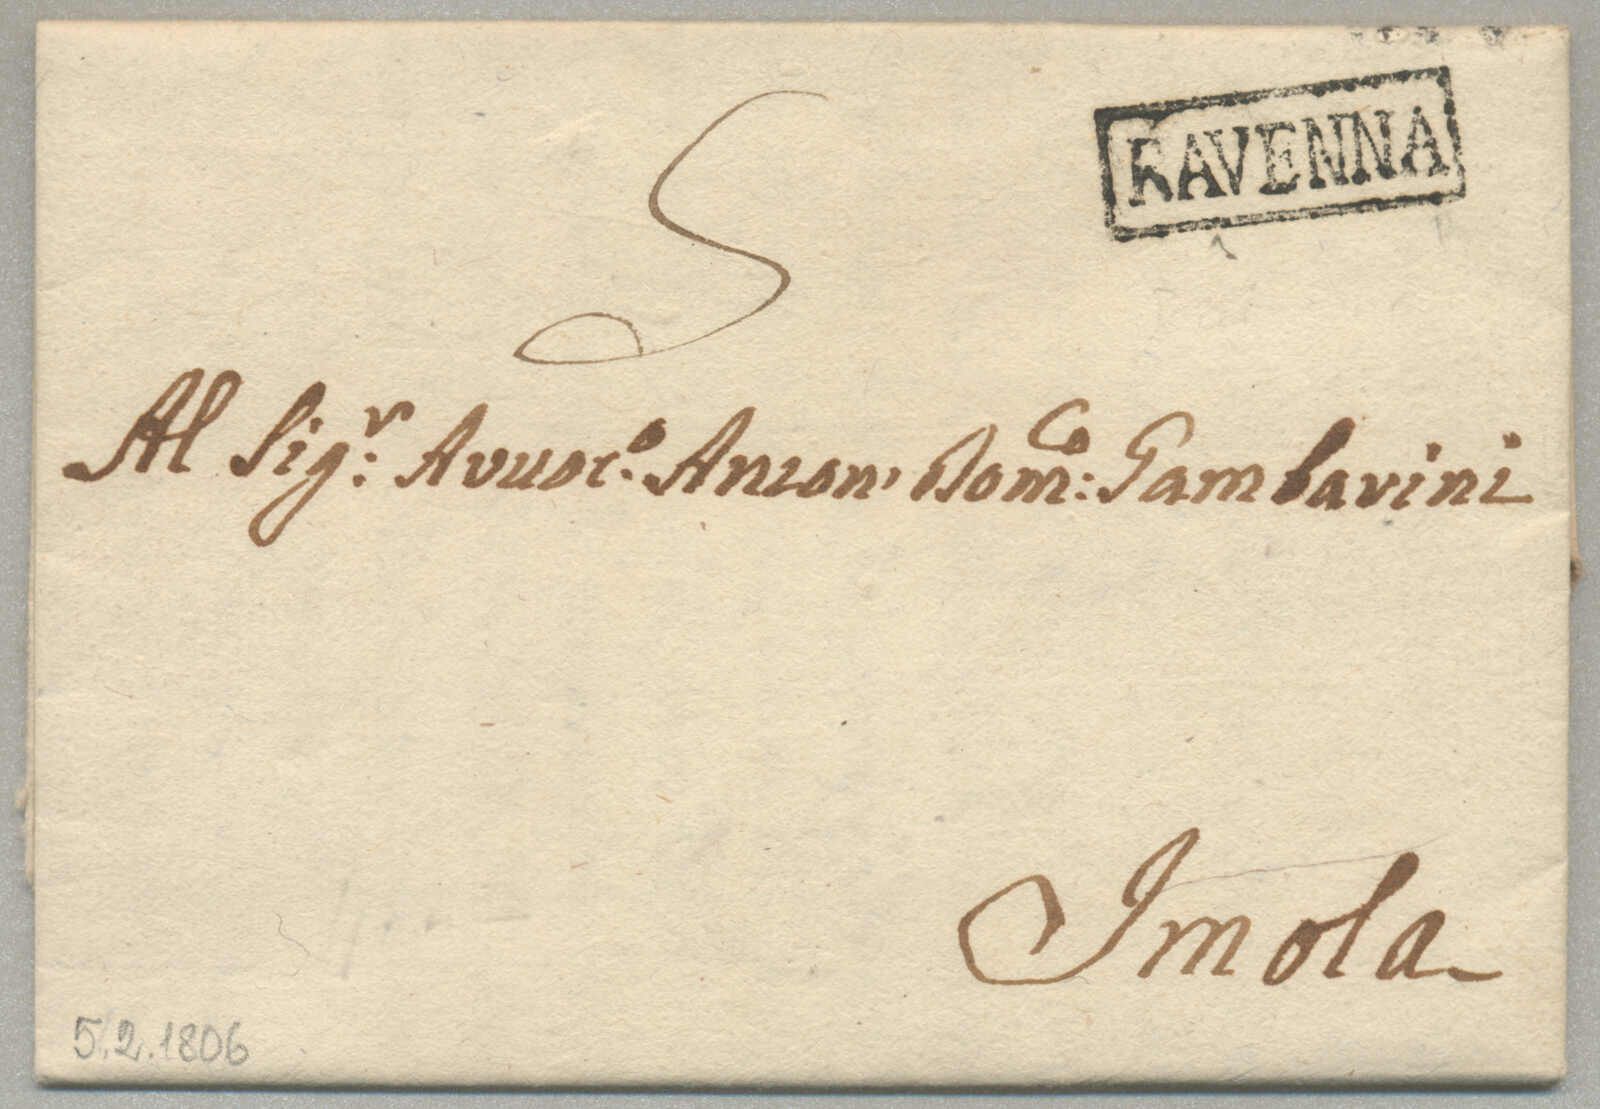 RAVENNA
5
Al Sig.r Avvoc.o Anton Dom.co Gambarini
Imola
5.2.1806